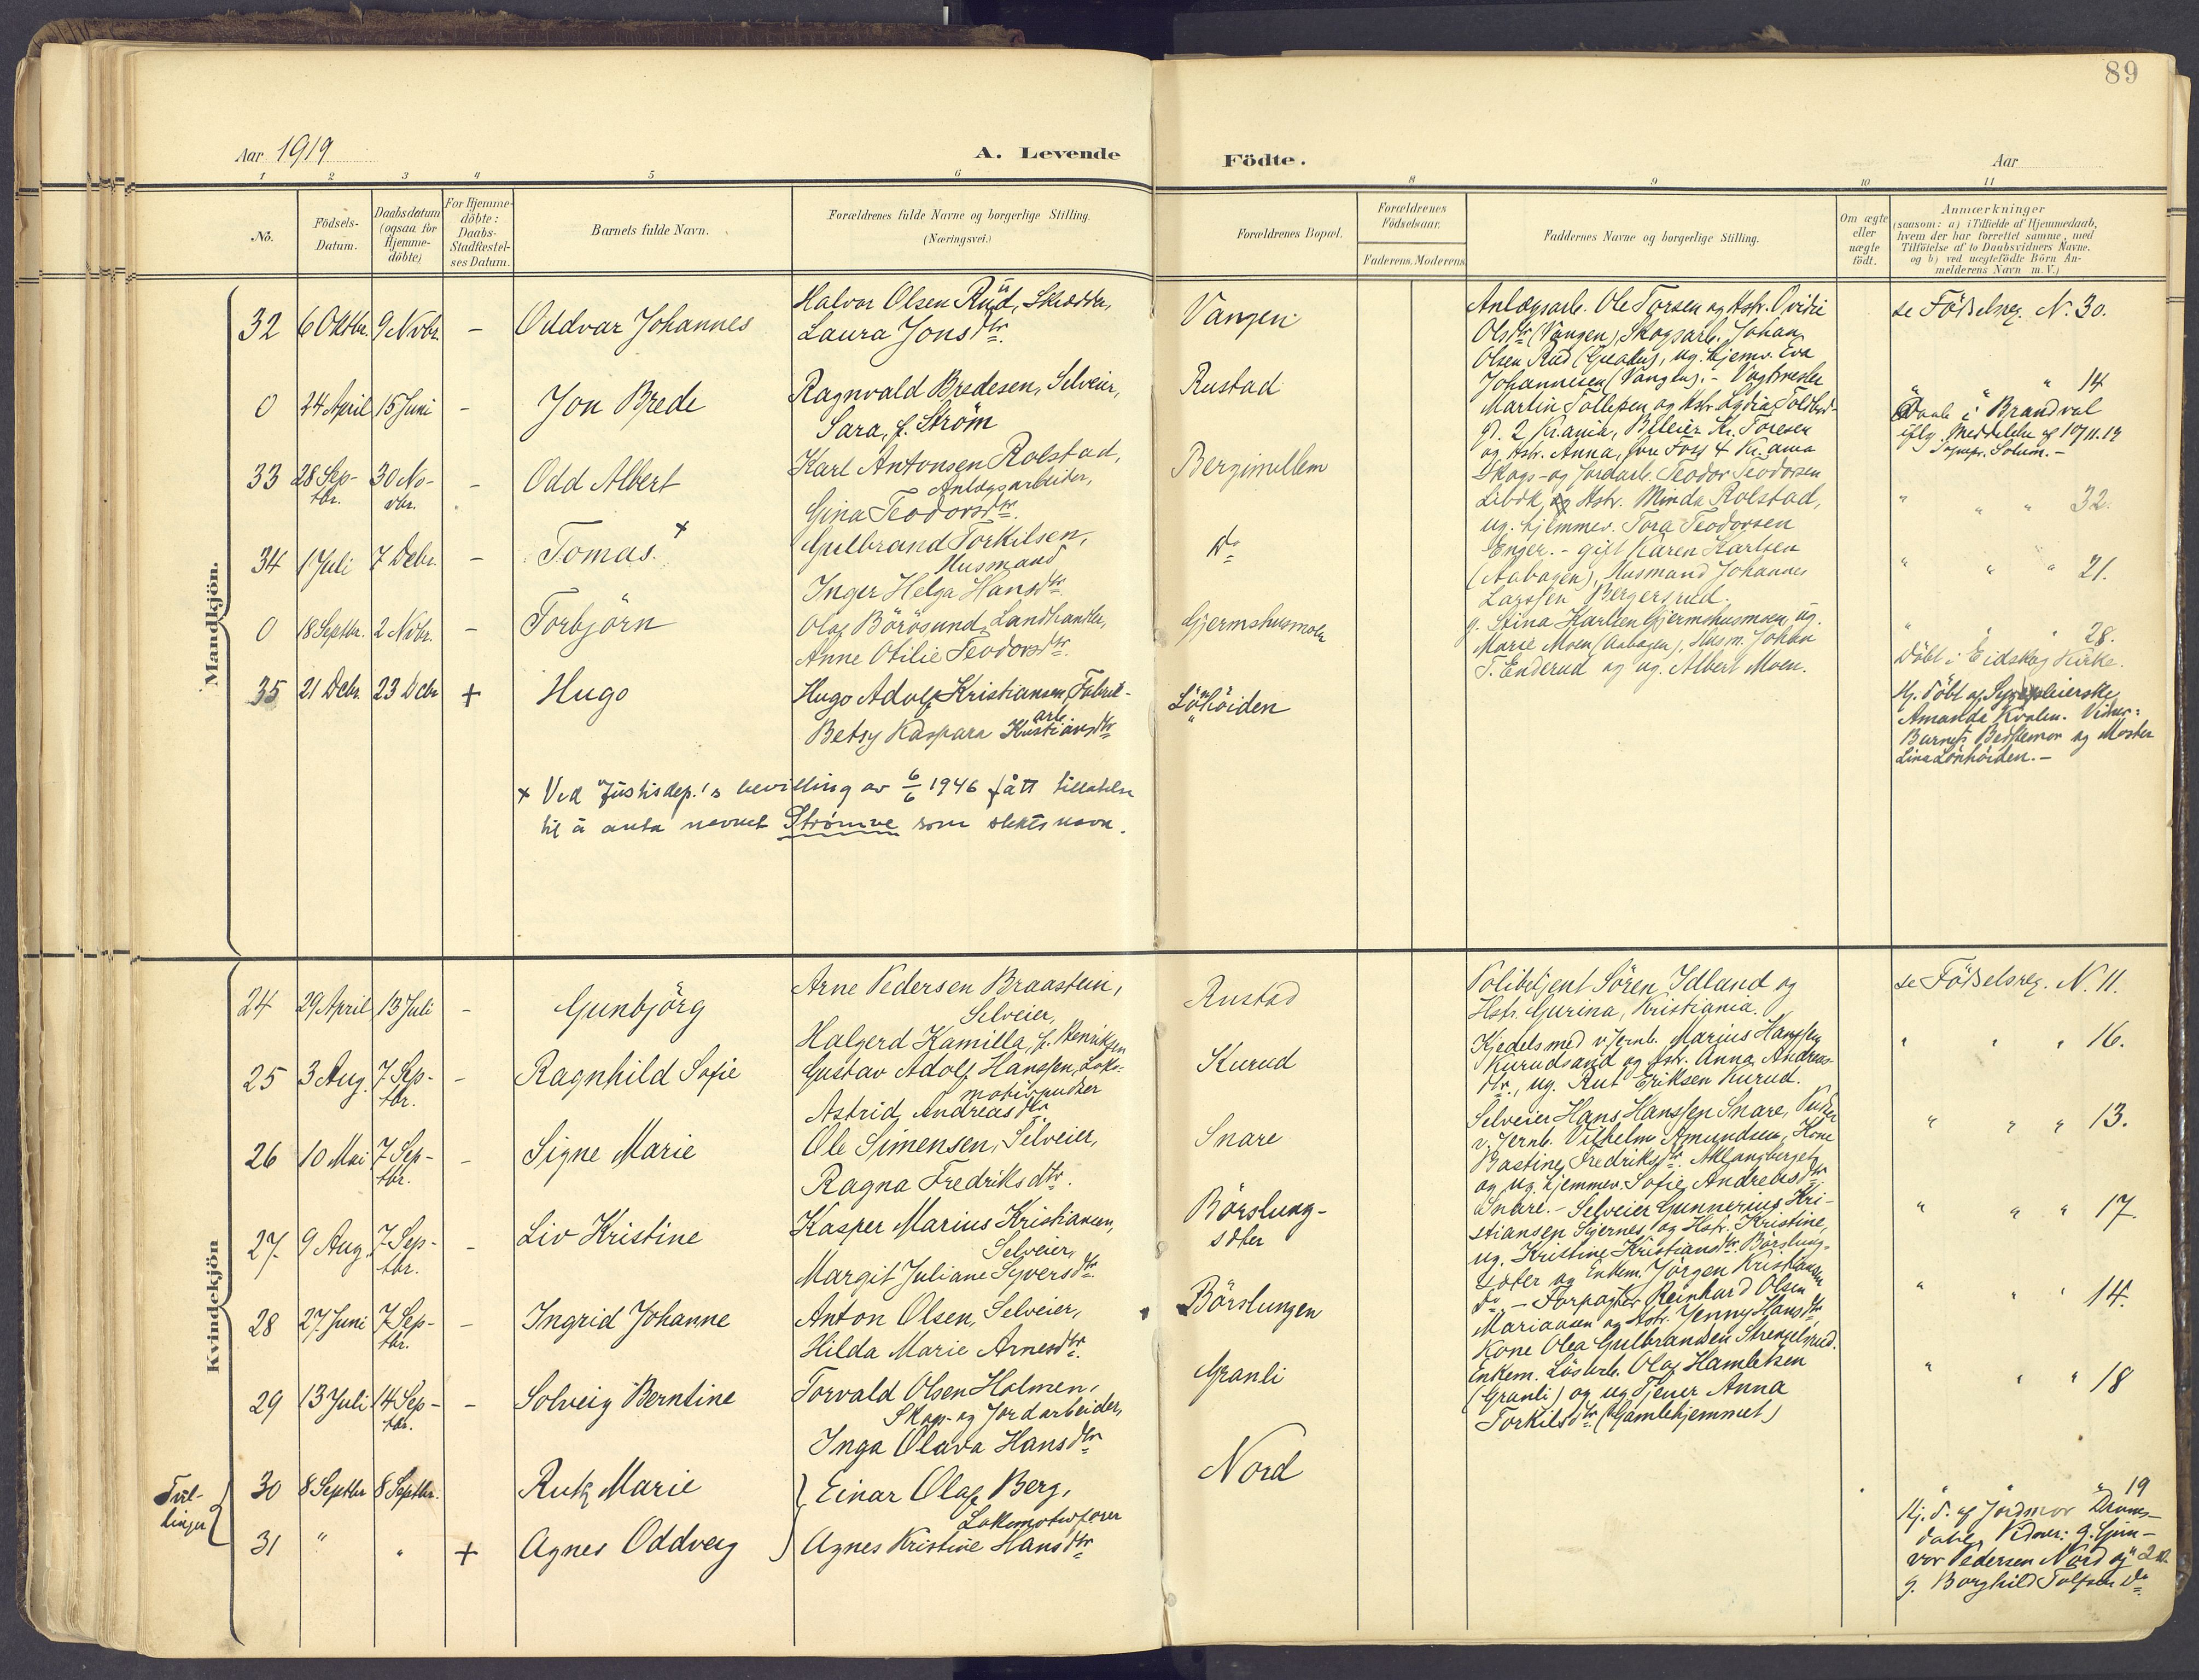 89
Aar 1919
A. Levende
Födte.
Aar
1
2
3
4
5
6
8
9
10
11
No.
Födsels-
Datum.
Daabsdatum
(ogsaa for
Hjemme-
döbte)
For Hjemme-
döbte:
Daabs-
Stadfæstel-
ses Datum.
Barnets fulde Navn.
Forældrenes fulde Navne og borgerlige Stilling.
(Næringsvei.)
Forældrenes Bopæl.
Forældrenes
Födselsaar.
Faderens.
Moderens.
Faddernes Navne og borgerlige Stilling.
Om ægte
eller
uægte
födt.
Anmærkninger
(saasom: a) i Tilfælde af Hjemmedaab,
hvem der har forrettet samme, med
Tilföielse af to Daabsvidners Navne.
og b) ved uægtefödte Börn An-
melderens Navn m. V.)
Mandkjön.
32
6 Oktbr.
9 Nvbr.
–
Oddvar Johannes
Halvor Olsen Rud, Skrædder,
Laura Jonsdtr.
Vangen
se Födselsreg. N. 30.
0
24 April
15 Juni
–
Jon Brede
Ragnvald Bredesen, Selveier,
Sara, f. Ström
Rustad
" " " 14
Daab i Brandval
iflg. Meddelelse af 10/11.19
Sognepr. Solum. –
33
28 Sep-
tbr.
30 No-
vbr.
–
Odd Albert
Karl Antonsen Rolstad,
Anlægsarbeider,
Gina Teodorsdtr.
Bergimellem
" " " 32.
34
1 Juli
7 Debr.
–
Tomas. x
Gulbrand Torkilsen,
Husmand
Inger Helga Hansdtr.
Do
" " " 21.
0
18 Septbr.
2 Nobr.
–
Torbjörn
Olaf Börösund, Landhandler,
Anne Otilie Teodorsdtr.
Gjermshusmoen
" " " 28.
Döbt i Eidskog Kirke.
35
21 Debr.
23 Debr
+
Hugo
Hugo Adolf Kristiansen, Fabrik-
arb.
Betsy Kaspara Kristiansdtr
Lönhöiden
Hj. döbt af Sygepleierske
Amanda Kvalen. Vidner:
Barnets Bestemor og Moster
Lina Lönhöiden. –
Anlægsarb. Ole Torsen og Hstr. Ovidie
Olsdtr (Vangen), Skogsarb. Johan
Olsen Rud
ug. hjemv. Eva
Johannesen (Vangen). – Vagtmester
Martin Tollefsen og Hstr. Lydia Toldbod-
g. 2 Kr.ania,
Kr. Toresen
og Hstr. Anna,
Foss 4 Kr.ania
Skogs- og Jordarb. Teodor Teodorsen
og Hstr. Minda Rolstad,
ug. hjemmev. Tora Teodorsen
Enger. – gift Karen Karlsen
(Aabogen), Husmand Johannes
Larssen Bergersrud.
g. Stina Karlsen Gjermshusmoen, ug.
Marie Moen (Aabogen), Husm. Johan
T. Enderud og ug. Albert Moen.
x Ved Justisdep.'s bevilling av 6/6 1946 fått tillatelse
til å anta navnet Strømne som slektsnavn.
Kvindekjön
24
29 April
13 Juli
–
Gunbjörg
Arne Pedersen Braastein,
Selveier,
Halgerd Kamilla, f. Henriksen
Rustad
se Födselsreg. N. 11.
25
3 Aug.
7 Sep-
tbr.
–
Ragnhild Sofie
Gustav Adolf Hanssen, Loko-
motivpudser
Astrid Andreasdtr
Kurud
" " " 16.
26
10 Mai
7 Sep-
tbr.
–
Signe Marie
Ole Simensen, Selveier,
Ragna Fredriksdtr.
Snare
" " " 13.
27.
9 Aug.
7 Sep-
tbr.
–
Liv Kristine
Kasper Marius Kristiansen,
Selveier,
Margit Juliane Syversdtr.
Börslung-
sæter
" " " 17.
28
27. Juni
7 Sep-
tbr.
–
Ingrid Johanne
Anton Olsen, Selveier,
Hilda Marie Arnesdtr.
Börslungen
" " " 14.
29
13 Juli
14 Sep-
tbr.
–
Solveig Berntine
Torvald Olsen Holmen,
Skogs- og Jordarbeider,
Inga Olava Hansdtr
Granli
" " " 18
Politibtjent Sören Idland og
Hstr. Gurina, Kristiania.
Kjedelsmed v. Jernb. Marius Hanssen
Kurudsand og Hstr. Anna Andreas-
dtr., ug. Rut Eriksen Kurud.
Selveier Hans Hanssen Snare, Pudser
v. Jernb. Vilhelm Amundsen, Kone
Bastine Fredriksdtr. Aklangberget
og ug. hjemmev. Sofie Andreasdtr
Snare. – Selveier Gunnerius Kri-
stiansen Stjernes og Hstr. Kristine,
ug. Kristine Kristiansdtr Börslung-
sæter og Enkem. Jörgen Kristiansen
Do. – Forpagter Reinhard Olsen
Mariansen og Hstr. Jenny Hansdtr,
Kone Olea Gulbrandsen Strengelsrud.
Enkem. Lösarb. Olaf Hamletsen
(Granli) og ug. Tjener Anna
Torkilsdtr. (Gamlehjemmet)
Tvil-
linger
30
8 Septbr
8 Septbr.
Rut Marie
Einar Olaf Berg,
Lokomotivförer
Agnes Kristine Hansdtr
Nord
" " " 19
31
"
"
+
Agnes Oddveig
Hj. d. af Jordmor
Vidner: g. Gun-
vor Pedersen Nord og
g. Borghild Tolfsen Do
" 20.